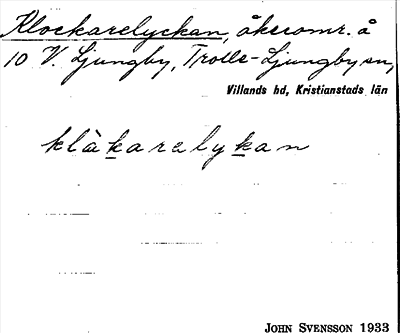 Klockarelyckan, åkeromr. å
10 V. Ljungby, Trolle-Ljungby sn,
Villands hd, Kristianstads län
klàkarelykan
JOHN SVENSSON 1933